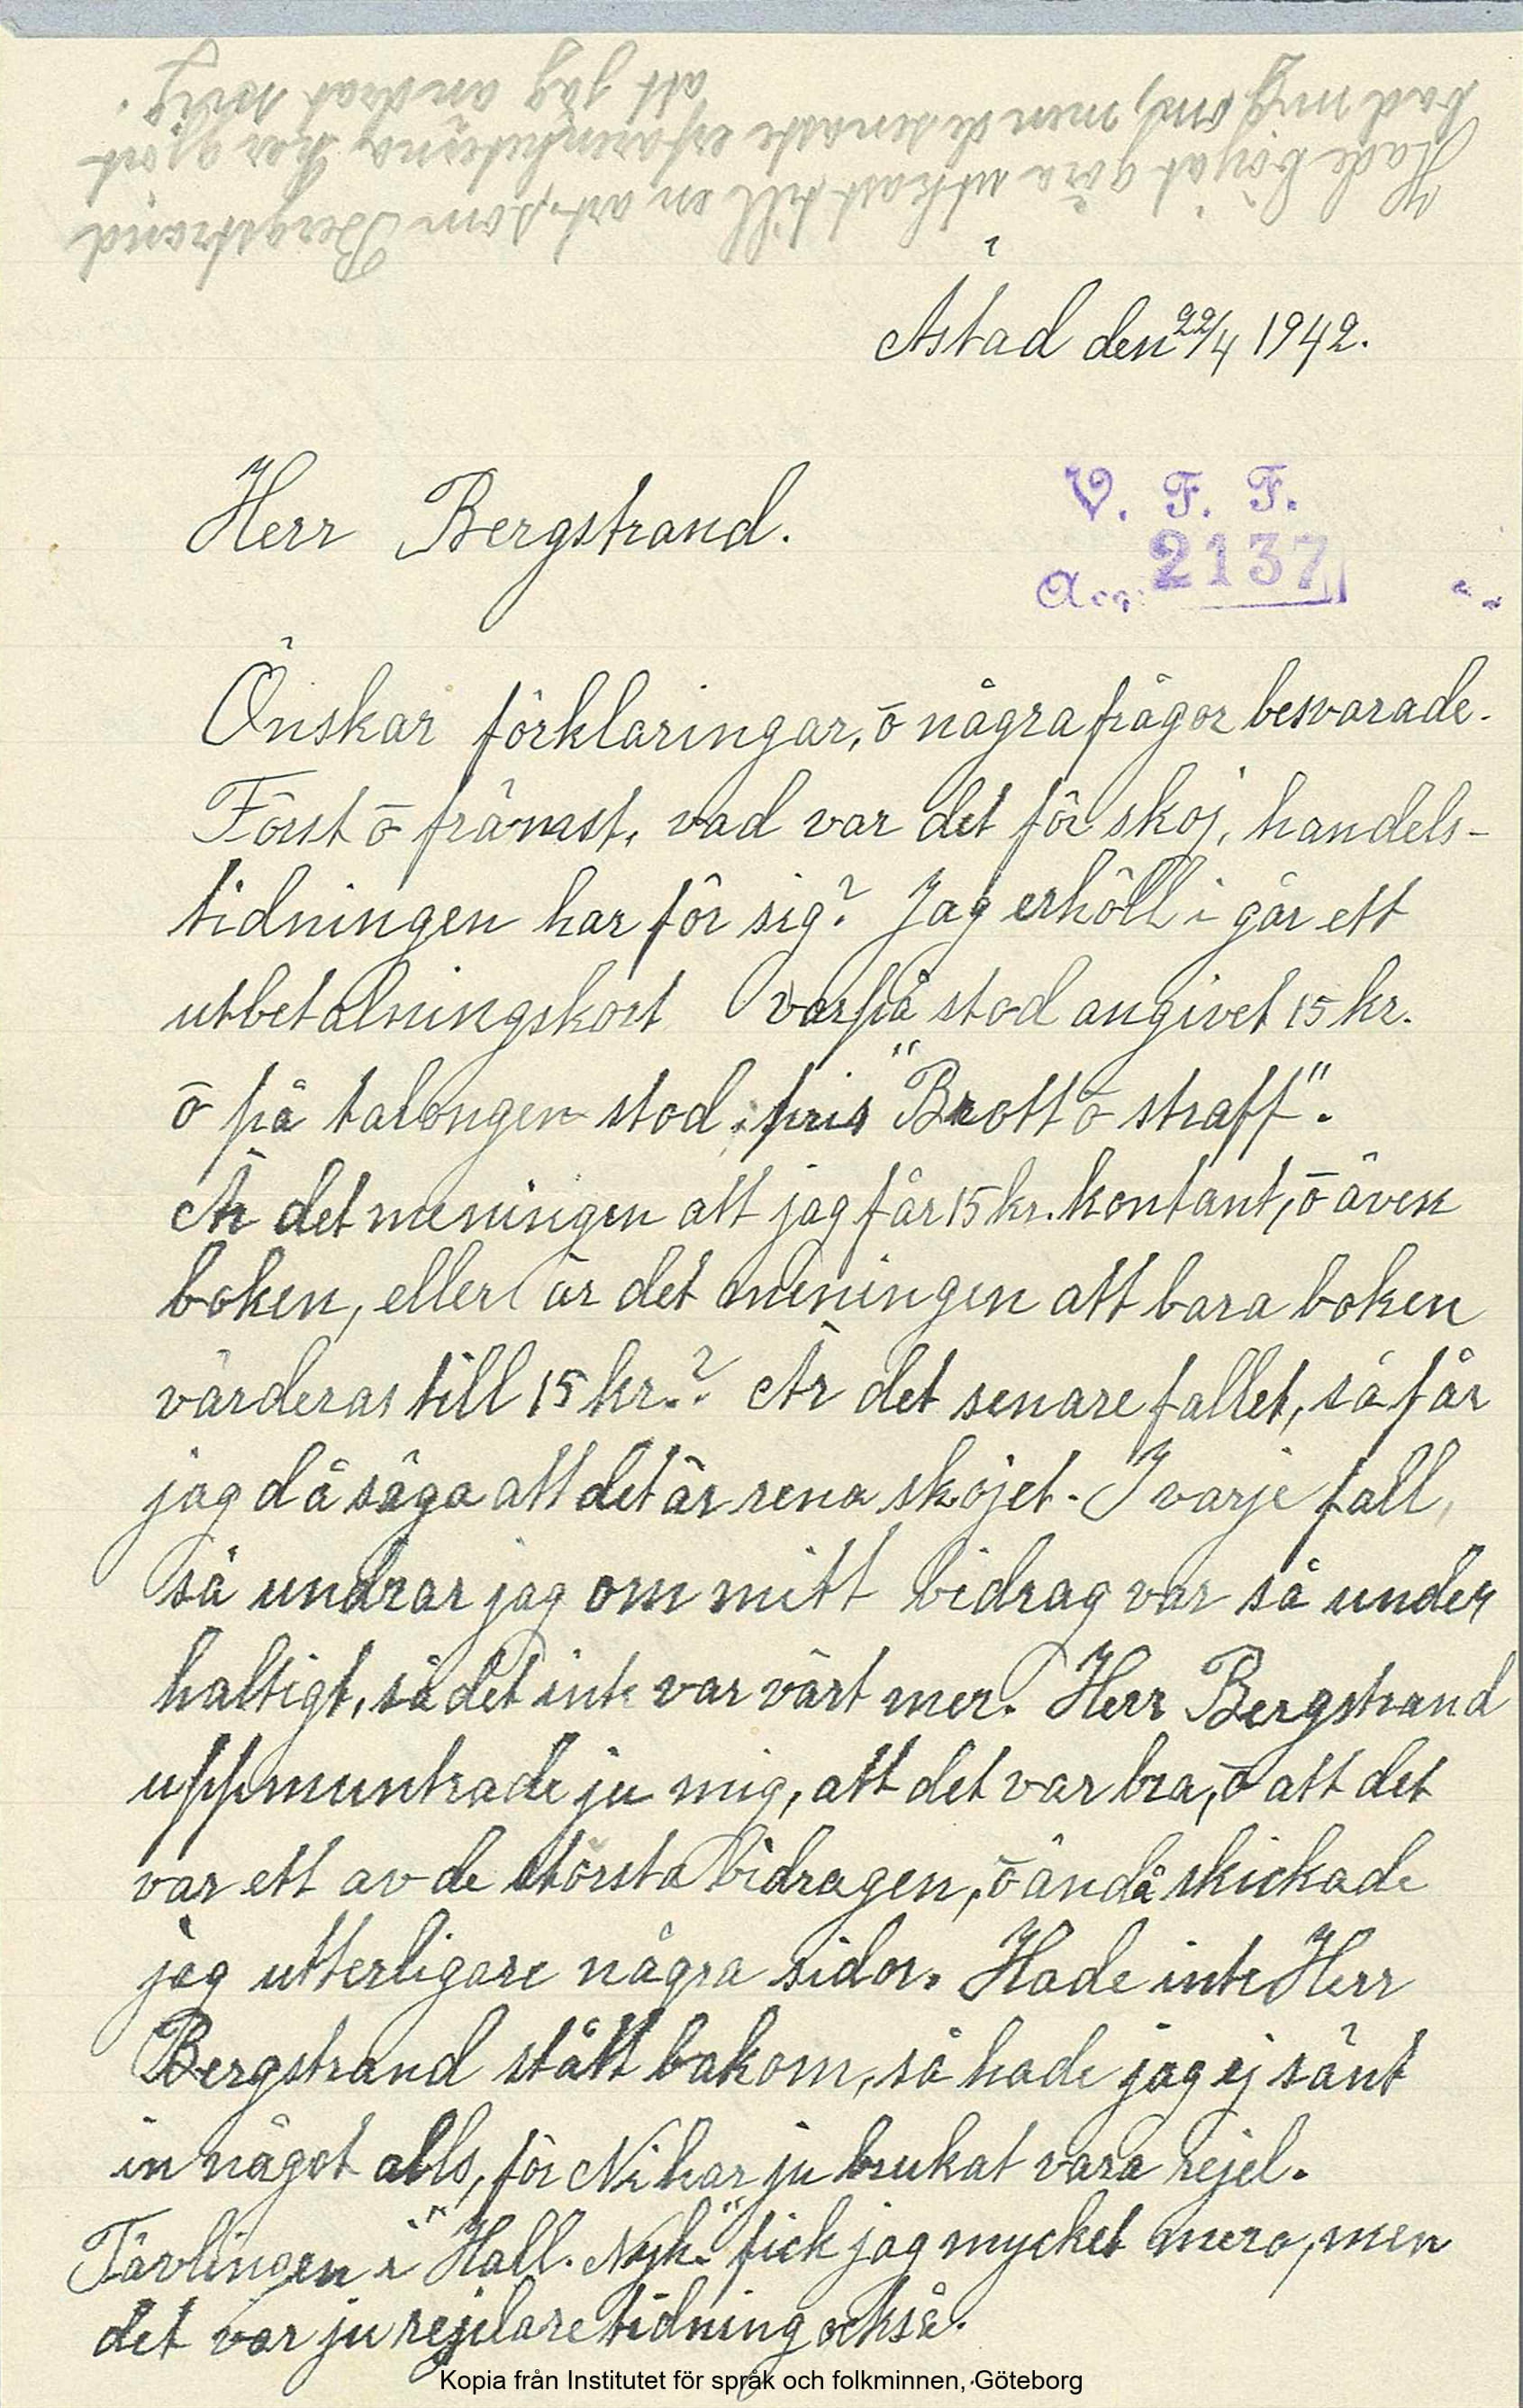 Hade börjat göra utkast till en art. som Bergstrand
bad mig om, men de senaste erfarenheterna har gjort
att jag ändrat mig.
Åstad den 22/4 1942.
Herr Bergstrand.
V. F. F.
Acc. 2137
Önskar förklaringar, ō några frågor besvarade.
Först ō främst, vad var det för skoj, handels-
tidningen har för sig? Jag erhöll i går ett
utbetalningskort varpå stod angivet 15 kr.
ō på talongen stod, pris "Brott ō straff".
Är det meningen att jag får 15 kr. kontant, ō även
boken, eller är det meningen att bara boken
värderas till 15 kr.? Är det senare fallet, så får
jag då säga att det är rena skojet. I varje fall,
så undrar jag om mitt bidrag var så under
haltigt, så det inte var värt mer. Herr Bergstrand
uppmuntrade ju mig, att det var bra, ō att det
var ett av de största bidragen, ō ändå skickade
jag utterligare några sidor. Hade inte Herr
Bergstrand stått bakom, så hade jag ej sänt
in något alls, för Ni har ju brukat vara rejel.
Tävlingen i "Hall. Nyh." fick jag mycket mera, men
det var ju rejelare tidning också.
Kopia från Institutet för språk och folkminnen, Göteborg